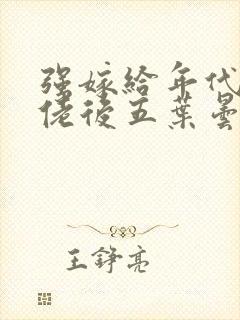 强嫁给年代
佬后五叶昙
王铮亮